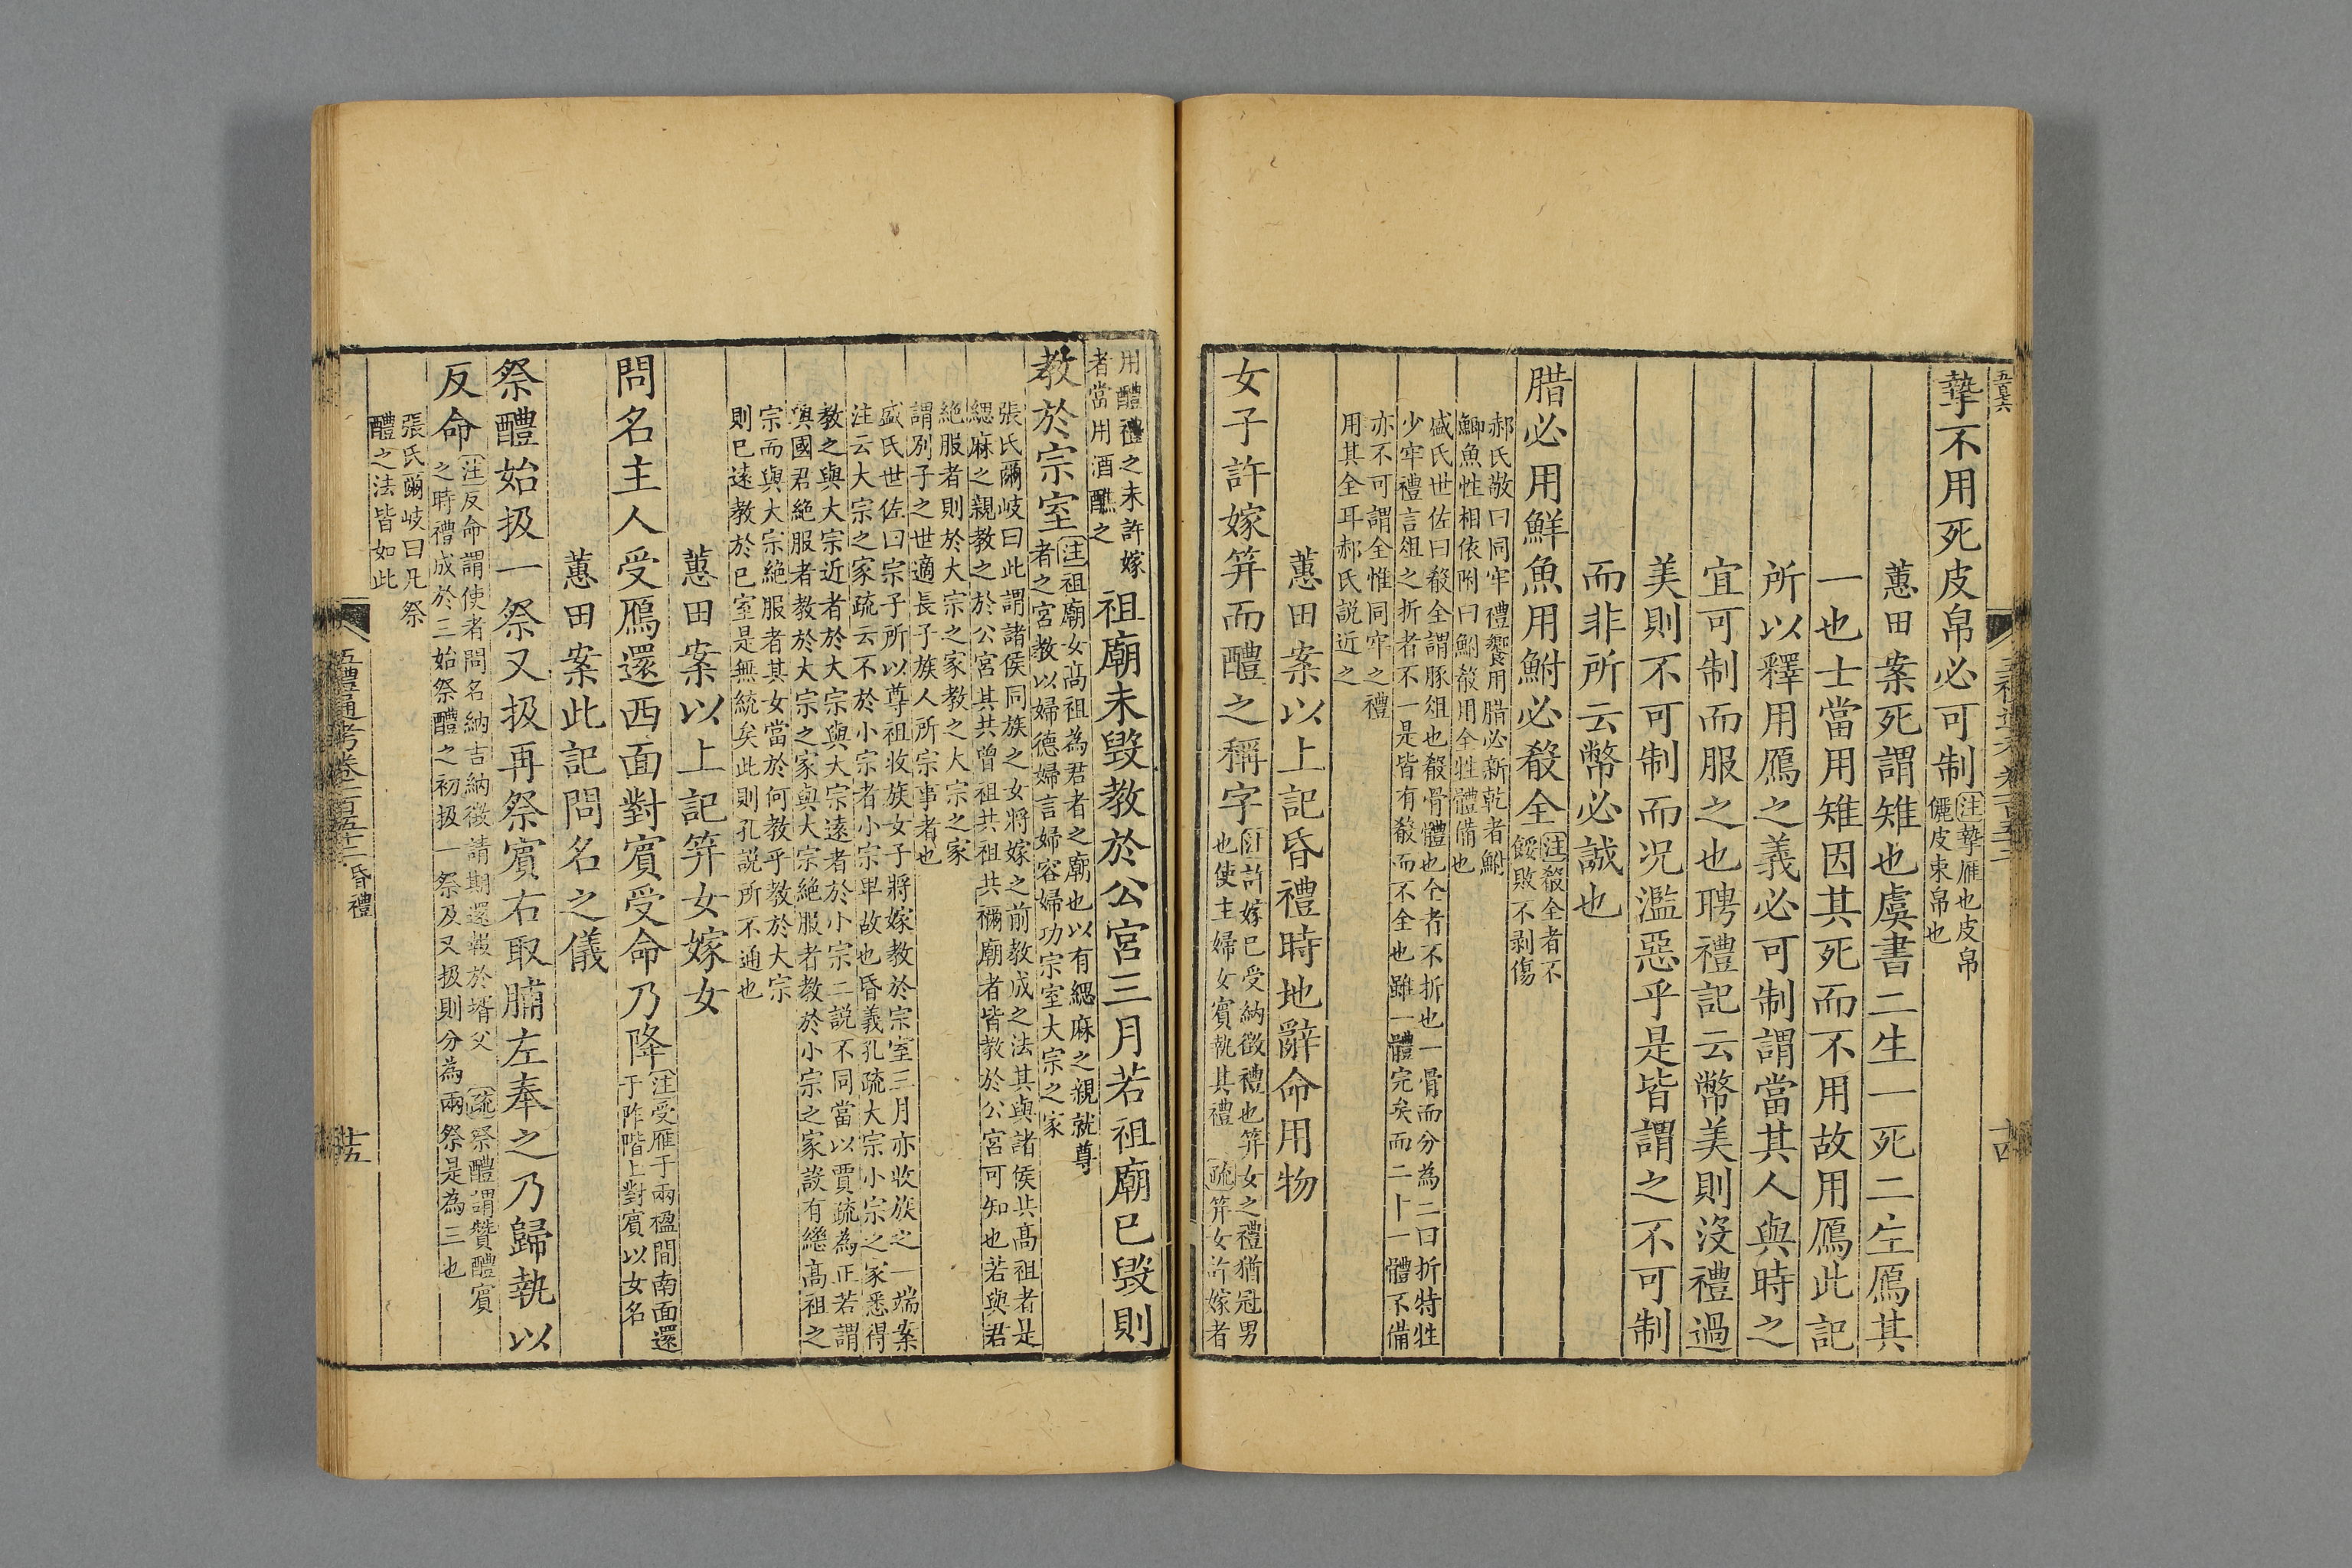 摯不用死皮帛必可制[注]摯雁也皮帛
儷皮束帛也
蕙田案死謂雉也虞書二生一死二生鴈其
一也士當用雉因其死而不用故用鴈此記
所以釋用鴈之義必可制謂當其人與時之
宜可制而服之也聘禮記云幣美則沒禮過
美則不可制而况濫惡乎是皆謂之不可制
而非所云幣必誠也
腊必用鮮魚用鮒必殽全[注]殽全者不
餒敗不剥傷
郝氏敬曰同牢禮饗用腊必新乾者鮒
鯽魚性相依附曰鮒殽用全牲體備也
盛氏世佐曰殽全謂豚俎也殽骨體也仝者不折也一骨而分為二曰折特牲
少牢禮言俎之折者不一是皆有殽而不全也雖一體完矣而二十一體不備
亦不可謂全惟同牢之禮
用其全耳郝氏説近之
蕙田案以上記昏禮時地辭命用物
女子許嫁笄而醴之稱字[注]許嫁已受納徵禮也笄女之禮猶冠男
也使主婦女賓執其禮 [疏]笄女許嫁者
用醴禮之未許嫁
者當用酒醮之
祖廟未毁教於公宮三月若祖廟已毁則
教於宗室[注]祖廟女高祖為君者之廟也以有緦麻之親就尊
者之宮教以婦德婦言婦容婦功宗室大宗之家
張氏爾岐曰此謂諸侯同族之女將嫁之前教成之法其與諸侯共高祖者是
緦麻之親教之於公宮其共曾祖共祖共禰廟者皆教於公宮可知也若與君
絶服者則於大宗之家教之大宗之家
謂别子之世適長子族人所宗事者也
盛氏世佐曰宗子所以尊祖收族女子將嫁教於宗室三月亦收族之一端案
注云大宗之家疏云不於小宗者小宗卑故也昏義孔疏大宗小宗之家悉得
教之與大宗近者於大宗與大宗遠者於小宗二説不同當以賈疏為正若謂
與國君絶服者教於大宗之家與大宗絶服者教於小宗之家設有繼高祖之
宗而與大宗絶服者其女當於何教乎教於大宗
則已遠教於已室是無統矣此則孔説所不通也
蕙田案以上記笄女嫁女
問名主人受鴈還西面對賓受命乃降[注]受雁于兩楹間南面還
于阼階上對賓以女名
蕙田案此記問名之儀
祭醴始扱一祭又扱再祭賓右取脯左奉之乃歸執以
反命[注]反命謂使者問名納吉納徵請期還報於壻父 [疏]祭醴謂贊醴賓
之時禮成於三始祭醴之初扱一祭及又扱則分為兩祭是為三也
張氏爾岐曰凡祭
醴之法皆如此
五禮通考卷一百五十二 昏禮
十五